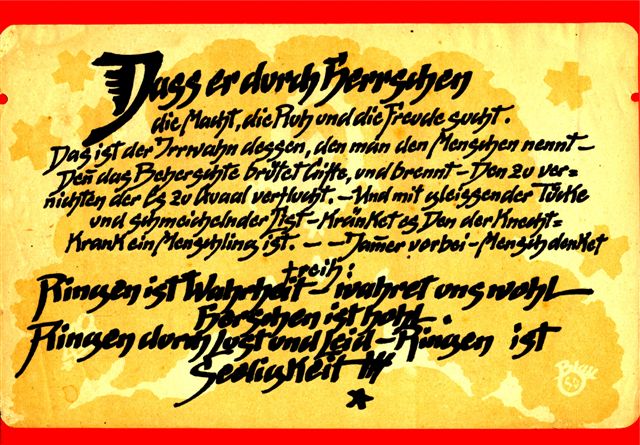 Dass er durch Herrschen
die Macht, die Ruh und die Freude sucht.
Das ist der Irrwahn dessen, den man den Menschen nennt –
Deñ das Beherschte brütet Gifte, und brennt – Den zu ver=
nichten der Es zu Quaal verflucht. – Und mit gleissender Tücke
und schmeichelnder List – Kränket es Den der Knecht=
Krank ein Menschling ist. – – Jam̃er vorbei – Mensch denket
treih:
Ringen ist Wahrheit – wahret uns wohl
Herschen ist hohl.
Ringen durch Lust und Leid – Ringen ist
Seeligkeit !!!